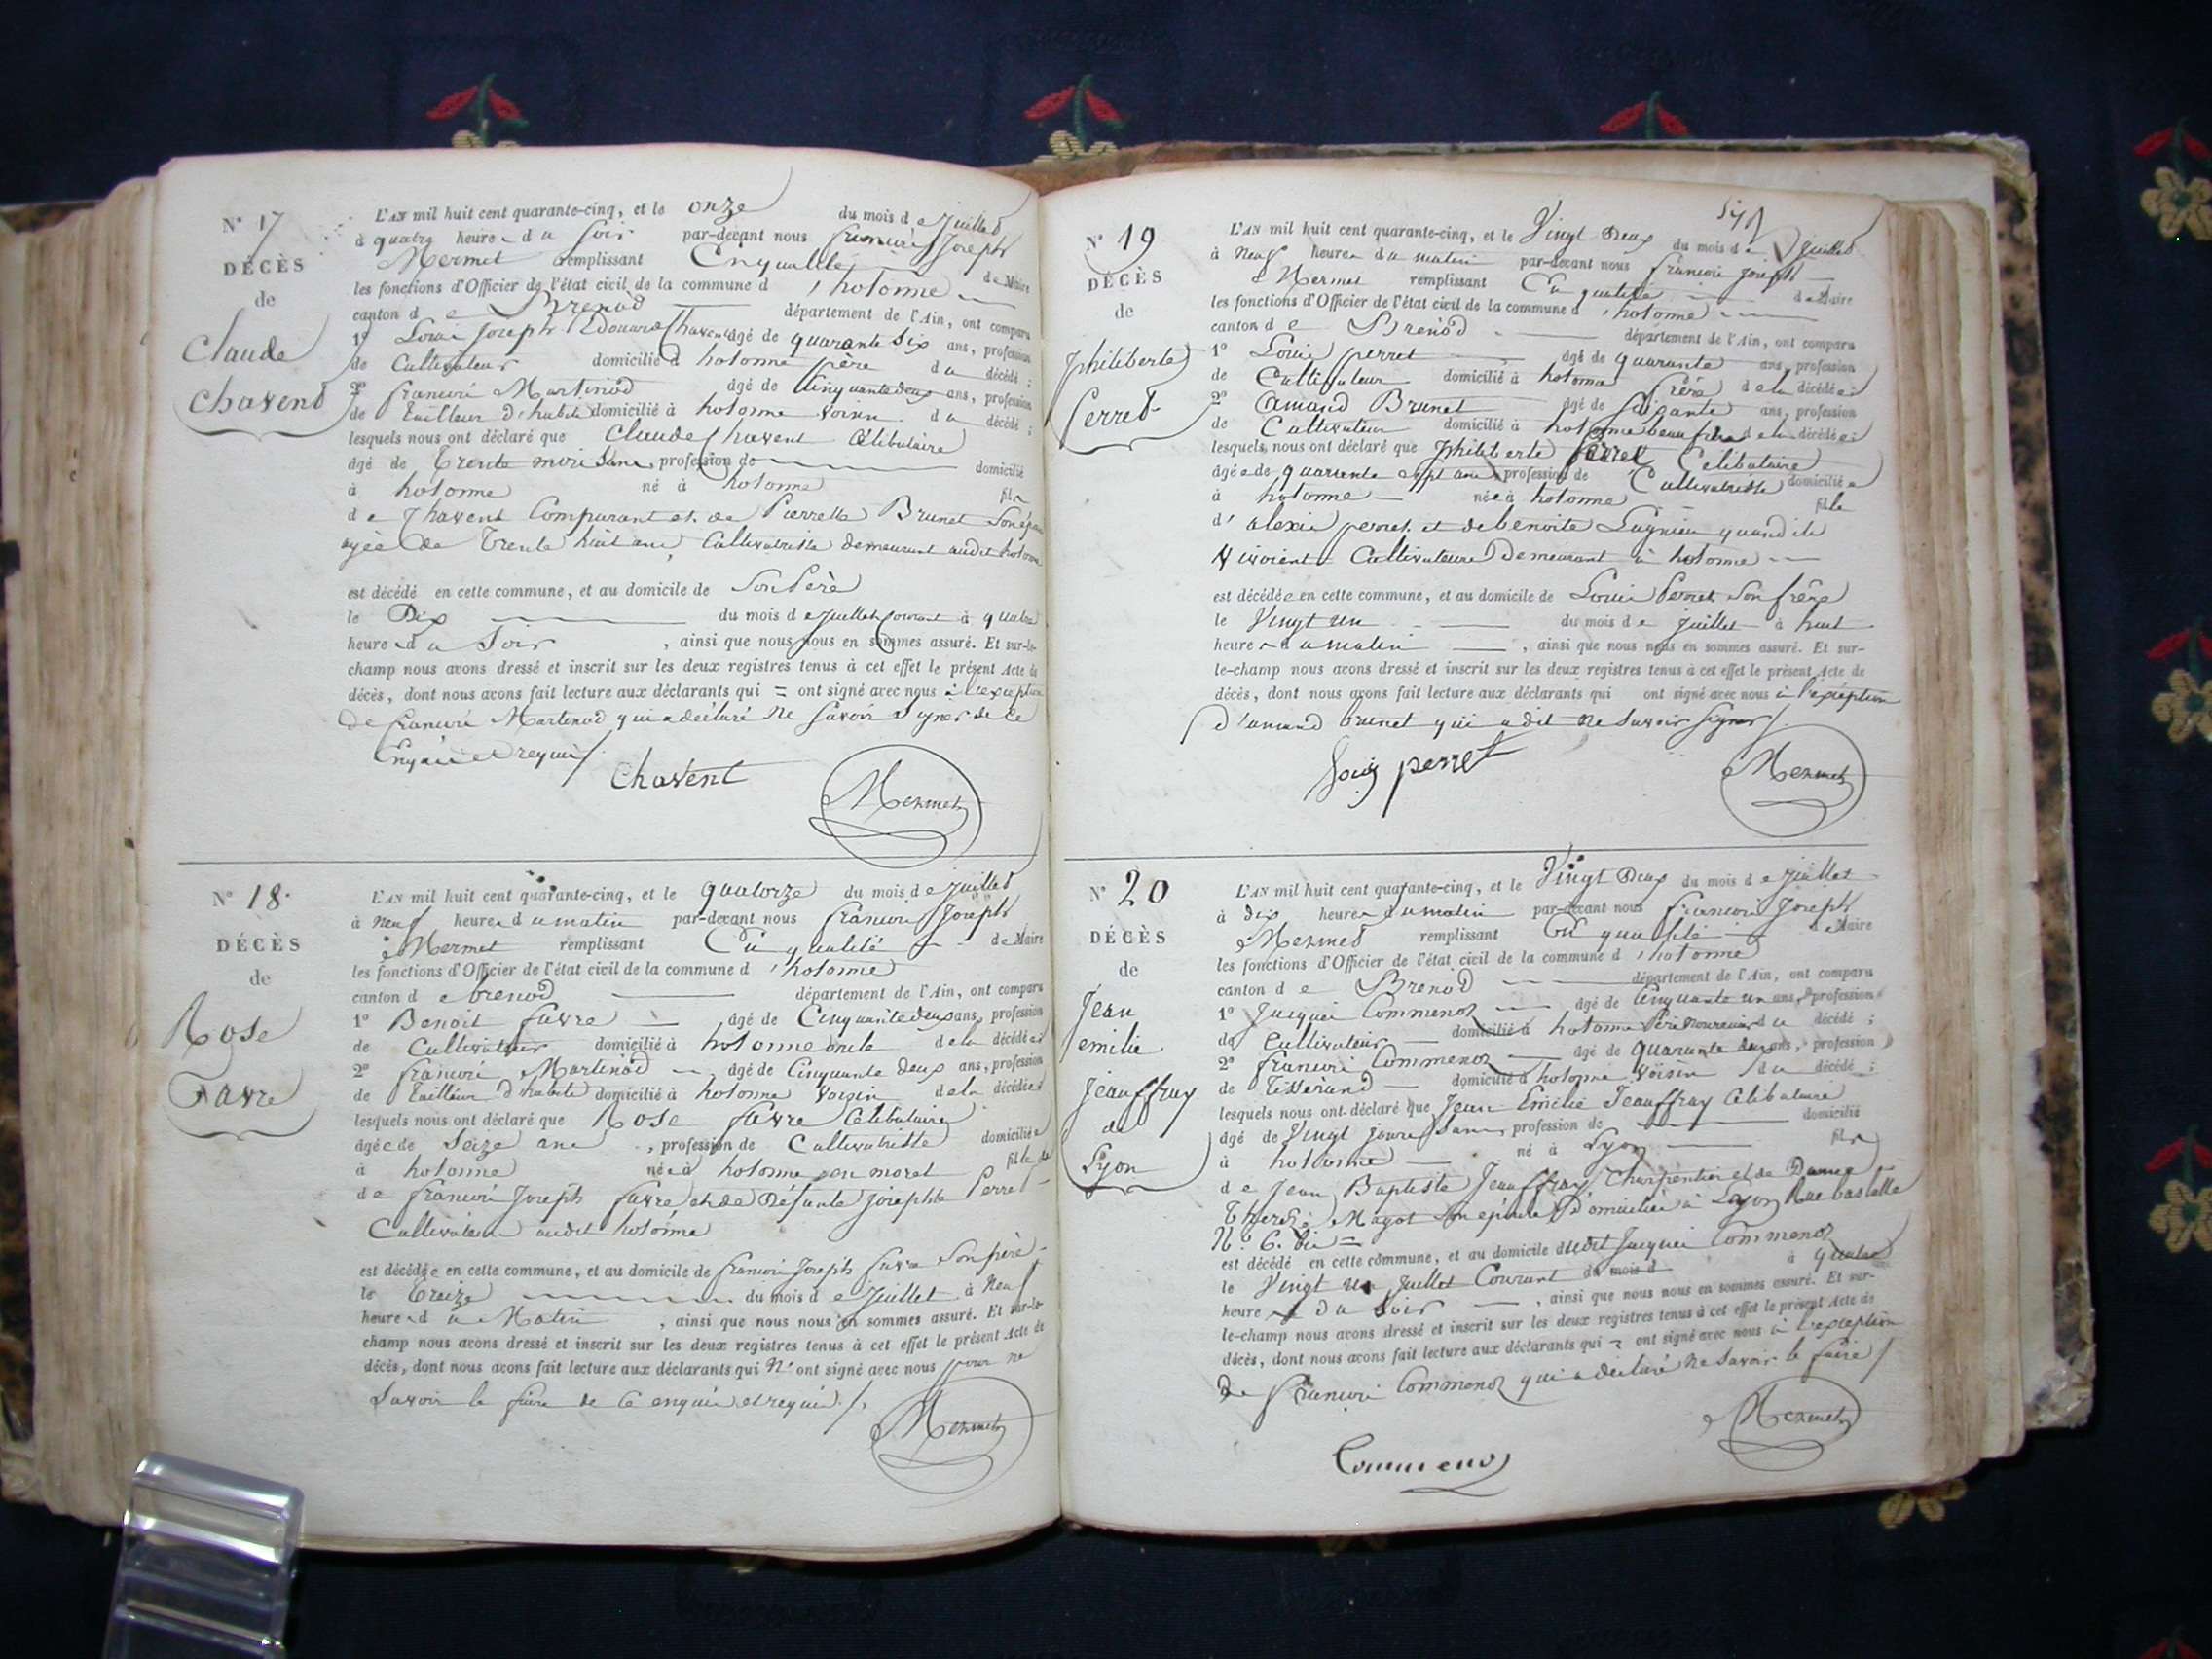 N° 17
DÉCÈS
de
Claude
Chavent
L'AN mil huit cent quarante-cinq, et le onze du mois de juillet
à quatre heure du soir par-devant nous françois joseph
Mermet remplissant En qualité de Maire
les fonctions d'Officier de l'état civil de la commune d'hotonne
canton de Brenod département de l'Ain, ont comparu
1° Louis Joseph Edouard Chavent âgé de quarante Six ans, profession
de Cultivateur domicilié à hotonne père du décédé ;
2° françois Martinod âgé de Cinquante deux ans, profession
de Tailleur d'habits domicilié à hotonne voisin du décédé ;
lesquels nous ont déclaré que Claude Chavent Célibataire
âgé de Trente mois sans profession de domicilié
à hotonne né à hotonne fils
de Chavent Comparant et de Pierrette Brunet Son épouse
agée de Trente huit ans, Cultivatrice demeurant audit hotonne
est décédé en cette commune, et au domicile de Son Père
le Dix du mois de juillet Courant à quatre
heure du Soir , ainsi que nous nous en sommes assuré. Et sur-le-
champ nous avons dressé et inscrit sur les deux registres tenus à cet effet le présent Acte de
décès, dont nous avons fait lecture aux déclarants qui = ont signé avec nous à l'exception
de françois Martinod qui a déclaré ne Savoir signer de ce
Enquis et requis /
Chavent
Mermet
N° 18.
DÉCÈS
de
Rose
Favre
L'AN mil huit cent quarante-cinq, et le quatorze du mois de juillet
à neuf heure du matin par-devant nous françois Joseph
Mermet remplissant En qualité de Maire
les fonctions d'Officier de l'état civil de la commune d'hotonne
canton de brenod département de l'Ain, ont comparu
1° Benoit favre âgé de Cinquante deux ans, profession
de Cultivateur domicilié à hotonne oncle de la décédée ;
2° françois Martinod âgé de Cinquante deux ans, profession
de Tailleur d'habits domicilié à hotonne voisin de la décédée ;
lesquels nous ont déclaré que Rose favre Célibataire
âgée de Seize ans , profession de Cultivatrice domiciliée
à hotonne née à hotonne fille
de françois Joseph favre et de Défunte Josephte Perret
Cultivateur audit hotonne
est décédée en cette commune, et au domicile de françois Joseph favre Son père
le Treize du mois de Juillet à Neuf
heure du Matin , ainsi que nous nous en sommes assuré. Et sur-le-
champ nous avons dressé et inscrit sur les deux registres tenus à cet effet le présent Acte de
décès, dont nous avons fait lecture aux déclarants qui N'ont signé avec nous pour ne
Savoir le faire de Ce enquis et requis /.
Mermet
N° 19
DÉCÈS
de
philiberte
Perret
L'AN mil huit cent quarante-cinq, et le Vingt Deux du mois de Juillet
à Neuf heure du matin par-devant nous françois joseph
Mermet remplissant En qualité de Maire
les fonctions d'Officier de l'état civil de la commune d'hotonne
canton de Brenod département de l'Ain, ont comparu
1° Louis perret âgé de quarante ans, profession
de Cultivateur domicilié à hotonne frère de la décédée ;
2° Amand Brunet âgé de Soixante ans, profession
de Cultivateur domicilié à hotonne beau frère de la décédée ;
lesquels nous ont déclaré que philiberte Perret Célibataire
âgée de quarante sept ans profession de Cultivatrice domiciliée
à hotonne née à hotonne fille
d'alexis perret et de benoite Lugnieu quand ils
Vivoient Cultivateurs Demeurant à hotonne
est décédée en cette commune, et au domicile de Louis Perret Son frère
le Vingt un du mois de juillet à huit
heure du matin , ainsi que nous nous en sommes assuré. Et sur-
le-champ nous avons dressé et inscrit sur les deux registres tenus à cet effet le présent Acte de
décès, dont nous avons fait lecture aux déclarants qui ont signé avec nous à l'exception
d'amand brunet qui a dit ne Savoir Signer /.
Louis perret
Mermet
N° 20
DÉCÈS
de
Jean
emilie
Jeauffray
de
Lyon
L'AN mil huit cent quarante-cinq, et le Vingt Deux du mois de juillet
à dix heure du matin par-devant nous françois Joseph
Mermet remplissant En qualité de Maire
les fonctions d'Officier de l'état civil de la commune d'hotonne
canton de Brenod département de l'Ain, ont comparu
1° Jacques Commenoz âgé de Cinquante un ans, profession
de Cultivateur domicilié à hotonne Père nouricier du décédé ;
2° françois Commenoz âgé de quarante deux ans, profession
de Tisserand domicilié à hotonne voisin du décédé ;
lesquels nous ont déclaré que Jean Emilie Jeauffray Célibataire
âgé de Vingt jours Sans profession de domicilié
à hotonne né à Lyon fils
de Jean Baptiste Jeauffray Charpentier et de Dame
Magot Son épouse Domiciliés à Lyon Rue
N.° 6. bis =
est décédé en cette commune, et au domicile dudit Jacques Commenoz
le Vingt un Juillet Courant du mois d à quatre
heure du Soir , ainsi que nous nous en sommes assuré. Et sur-
le-champ nous avons dressé et inscrit sur les deux registres tenus à cet effet le présent Acte de
décès, dont nous avons fait lecture aux déclarants qui = ont signé avec nous à l'exception
de françois Commenoz qui a déclaré ne Savoir le faire /
Mermet
Commenoz